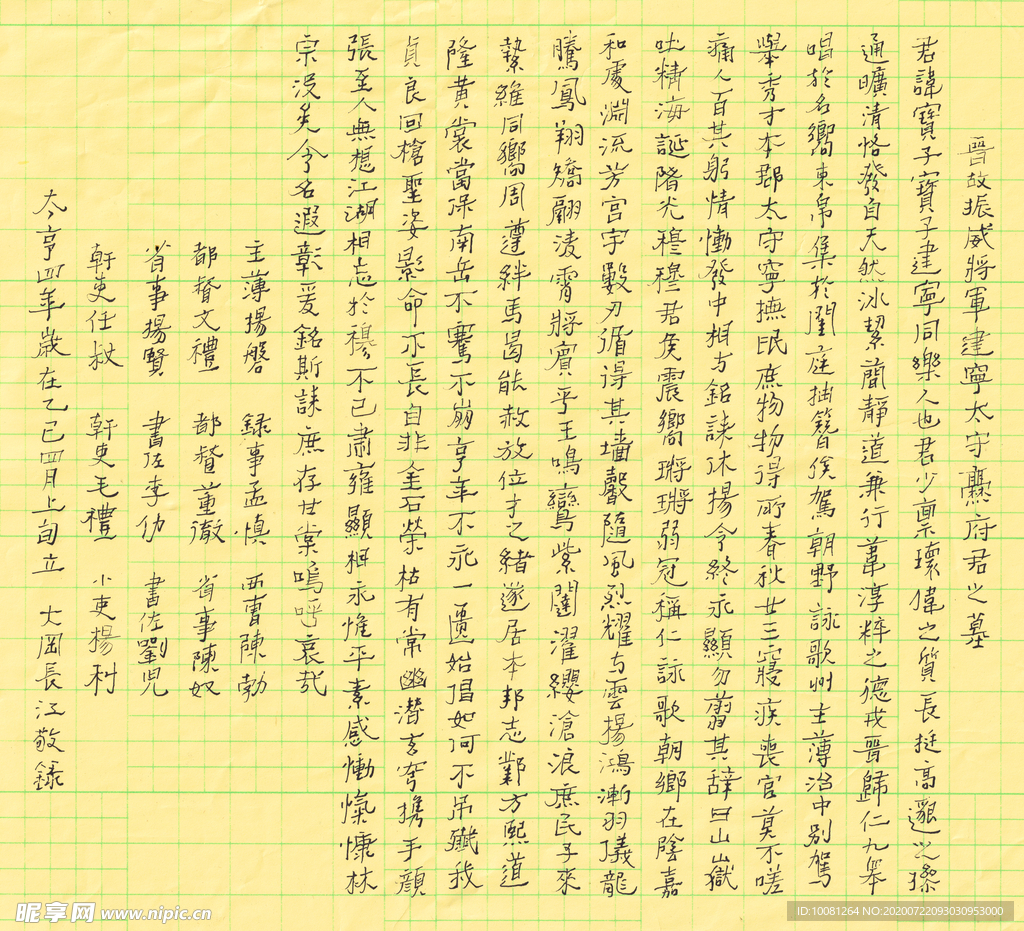 晉故振威將軍建寧太守爨府君之墓
君諱寶子寶子建寧同樂人也君少禀瓌偉之質長挺高邈之操
通曠清恪發自天然冰絜簡靜道兼行葦淳粹之德戎晉歸仁九皋
唱於名嚮束帛集於閨庭抽簪俟駕朝野詠歌州主薄治中别駕
舉秀才本郡太守寧撫氓庶物物得所春秋廿三寢疾喪官莫不嗟
痛人百其躬情慟發中相与銘誄休揚令終永顯勿翦其辞曰山嶽
吐精海誕陼光穆穆君侯震嚮鏘鏘弱冠稱仁詠歌朝鄉在陰嘉
和處淵流芳宫宇數刃循得其墻馨隨風烈耀与雲揚鴻漸羽儀龍
騰鳳翔矯翮凌霄將賓乎王鳴鸞紫闥濯纓滄浪庶民子來
縶維同嚮周遵絆馬曷能赦放位才之緒遂居本邦志鄴方熙道
隆黄裳當保南岳不騫不崩享年不永一匱始倡如何不弔殲我
貞良回槍聖姿影命不長自非金石榮枯有常幽潛玄穹携手顔
張至人無想江湖相忘於穆不已肅雍顯相永惟平素感慟慷慷林
宗没矣令名遐彰爰銘斯誄庶存甘棠嗚呼哀哉
主薄揚磐 録事孟慎 西曹陳勃
都督文禮 都督董徹 省事陳奴
省事揚賢 書佐李仂 書佐劉兒
幹吏任㧣 幹吏毛禮 小吏楊利
太亨四年歲在乙巳四月上旬立 大岡長江敬錄
昵享网 www.nipic.cn
ID:10081264 NO:20200722093030953000